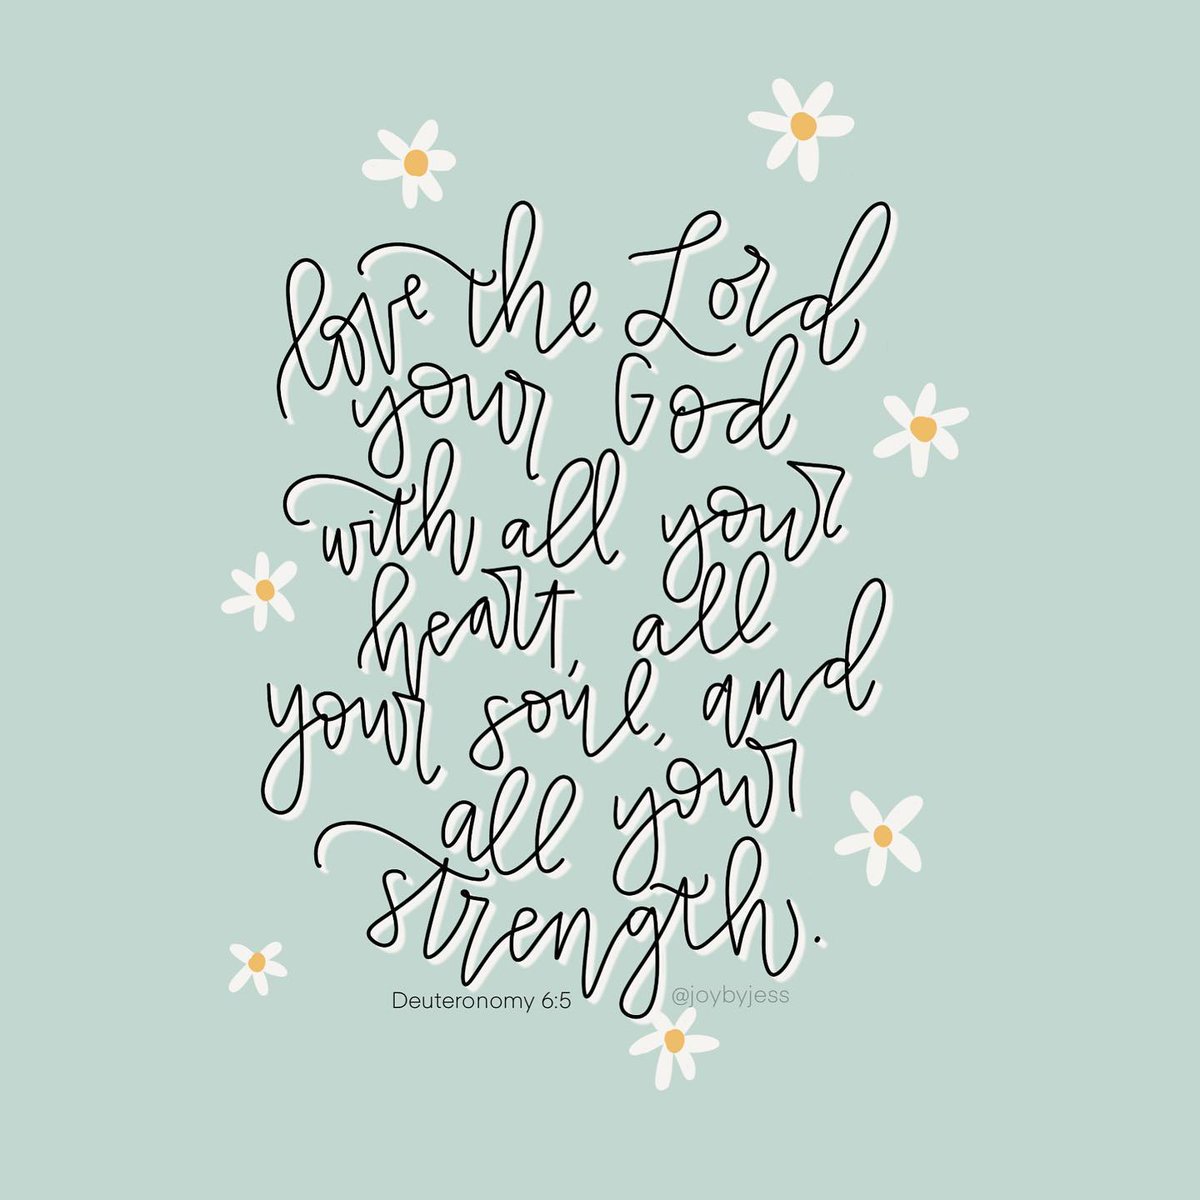 love the Lord
your God
with all your
heart, all
your soul, and
all your
strength.
Deuteronomy 6:5 @joybyjess